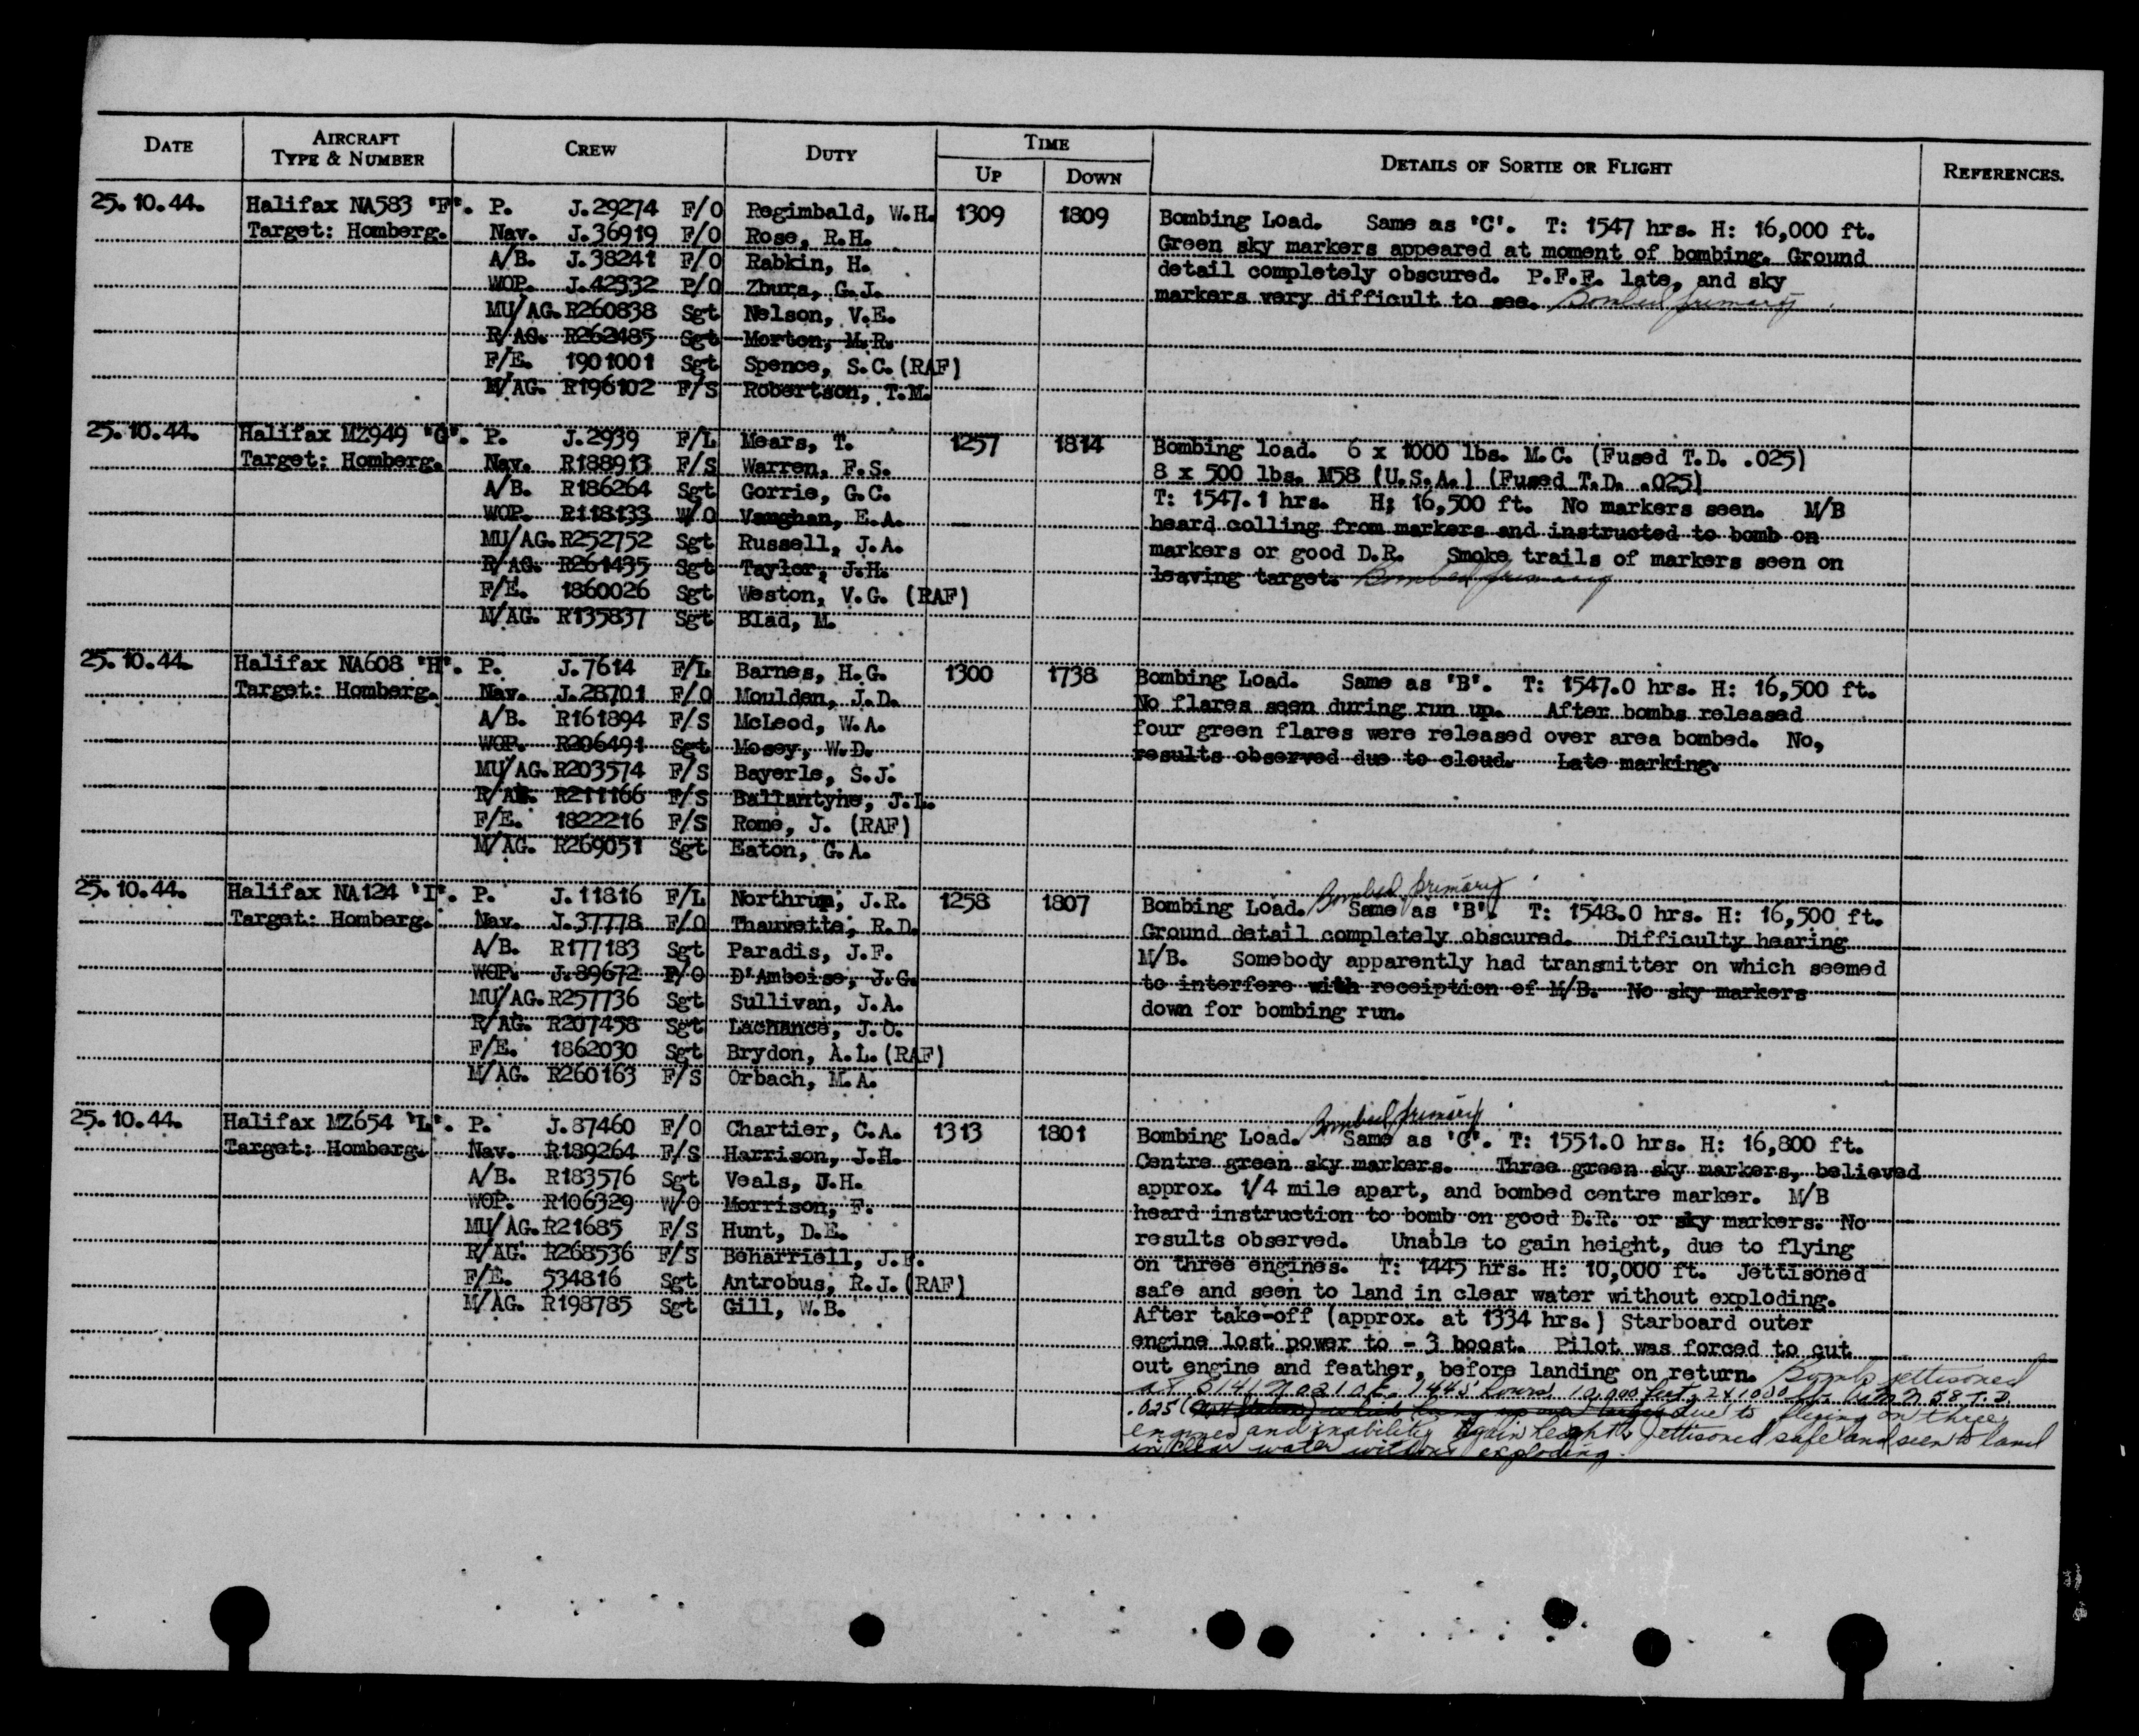 DATE AIRCRAFT TYPE & NUMBER CREW DUTY TIME UP DOWN DETAILS OF SORTIE OR FLIGHT REFERENCES.
25.10.44. Halifax NA583 'F'. P. J.29274 F/O Regimbald, W.H. 1309 1809 Bombing Load. Same as 'C'. T: 1547 hrs. H: 16,000 ft.
Target: Homberg. Nav. J.36919 F/O Rose, R.H. Green sky markers appeared at moment of bombing. Ground
A/B. J.38241 F/O Rabkin, H. detail completely obscured. P.F.F. late, and sky
WOP. J.42332 P/O Zbura, G.J. markers very difficult to see. Bombed primary.
MU/AG. R260838 Sgt Nelson, V.E.
R/AG. R262485 Sgt Morton, M.R.
F/E. 1901001 Sgt Spence, S.C. (RAF)
M/AG. R196102 F/S Robertson, T.M.
25.10.44. Halifax MZ949 'G'. P. J.2939 F/L Mears, T. 1257 1814 Bombing load. 6 x 1000 lbs. M.C. (Fused T.D. .025)
Target: Homberg. Nav. R188913 F/S Warren, F.S. 8 x 500 lbs. M58 (U.S.A.) (Fused T.D. .025)
A/B. R186264 Sgt Gorrie, G.C. T: 1547.1 hrs. H; 16,500 ft. No markers seen. M/B
WOP. R118133 W/O Vaughan, E.A. heard colling from markers and instructed to bomb on
MU/AG. R252752 Sgt Russell, J.A. markers or good D.R. Smoke trails of markers seen on
R/AG. R261435 Sgt Taylor, J.H. leaving target. Bombed primary
F/E. 1860026 Sgt Weston, V.G. (RAF)
M/AG. R135837 Sgt Blad, M.
25.10.44. Halifax NA608 'H'. P. J.7614 F/L Barnes, H.G. 1300 1738 Bombing Load. Same as 'B'. T: 1547.0 hrs. H: 16,500 ft.
Target: Homberg. Nav. J.28701 F/O Moulden, J.D. No flares seen during run up. After bombs released
A/B. R161894 F/S McLeod, W.A. four green flares were released over area bombed. No,
WOP. R206491 Sgt Mosey, W.D. results observed due to cloud. Late marking.
MU/AG. R203574 F/S Bayerle, S.J.
R/AG. R211166 F/S Ballantyne, J.L.
F/E. 1822216 F/S Rome, J. (RAF)
M/AG. R269051 Sgt Eaton, G.A.
Bombed primary
25.10.44. Halifax NA124 'I'. P. J.11816 F/L Northrup, J.R. 1258 1807 Bombing Load. Same as 'B'. T: 1548.0 hrs. H: 16,500 ft.
Target: Homberg. Nav. J.37778 F/O Thauvette, R.D. Ground detail completely obscured. Difficulty hearing
A/B. R177183 Sgt Paradis, J.F. M/B. Somebody apparently had transmitter on which seemed
WOP. J.89672 P/O D'Amboise, J.G. to interfere with receiption of M/B. No sky markers
MU/AG. R257736 Sgt Sullivan, J.A. down for bombing run.
R/AG. R207458 Sgt Lachance, J.O.
F/E. 1862030 Sgt Brydon, A.L. (RAF)
M/AG. R260163 F/S Orbach, M.A.
Bombed primary
25.10.44. Halifax MZ654 'L'. P. J.87460 F/O Chartier, C.A. 1313 1801 Bombing Load. Same as 'C'. T: 1551.0 hrs. H: 16,800 ft.
Target: Homberg. Nav. R189264 F/S Harrison, J.H. Centre green sky markers. Three green sky markers, believed
A/B. R183576 Sgt Veals, J.H. approx. 1/4 mile apart, and bombed centre marker. M/B
WOP. R106329 W/O Morrison, F. heard instruction to bomb on good D.R. or sky markers. No
MU/AG. R21685 F/S Hunt, D.E. results observed. Unable to gain height, due to flying
R/AG. R268536 F/S Beharriell, J.F. on three engines. T: 1445 hrs. H: 10,000 ft. Jettisoned
F/E. 534816 Sgt Antrobus, R.J. (RAF) safe and seen to land in clear water without exploding.
M/AG. R198785 Sgt Gill, W.B. After take-off (approx. at 1334 hrs.) Starboard outer
engine lost power to - 3 boost. Pilot was forced to cut
out engine and feather, before landing on return. Bombs jettisoned
at 1445 hours, 10,000 feet, 2x1000 T.D.
.025 due to flying on three
engines and inability gain height. Jettisoned safe and seen to land
in clear water without exploding.